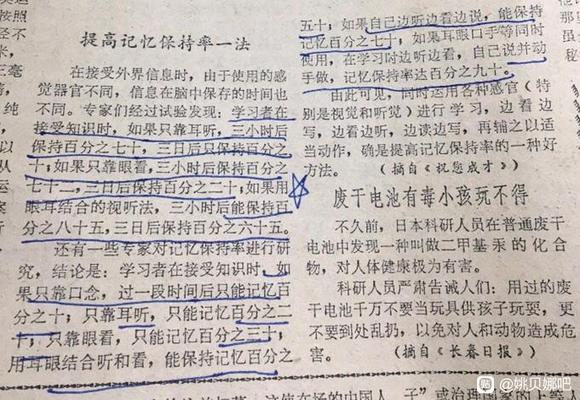 提高记忆保持率一法
在接受外界信息时，由于使用的感
觉器官不同，信息在脑中保存的时间也
不同。专家们经过试验发现：学习者在
接受知识时，如果只靠耳听，三小时后
保持百分之七十，三日后只保持百分之
十；如果只靠眼看，三小时后保持百分之
七十二，三日后保持百分之二十；如果用
眼耳结合的视听法，三小时后能保持百
分之八十五，三日后保持百分之六十五。
还有一些专家对记忆保持率进行研
究，结论是：学习者在接受知识时，如
果只靠口念，过一段时间后只能记忆百
分之十；只靠耳听，只能记忆百分之二
十；只靠眼看，只能记忆百分之三十；
用耳眼结合听和看，能保持记忆百分之
五十；如果自己边听边看边说，能保持
记忆百分之七十；如果耳眼口手等同时
使用，在学习时边听边看，自己说并动
手做，记忆保持率达百分之九十。
由此可见，同时运用各种感官（特
别是视觉和听觉）进行学习，边看边
写，边看边听，边读边写，再辅之以适
当动作，确是提高记忆保持率的一种好
方法。（摘自《祝您成才》）
废干电池有毒小孩玩不得
不久前，日本科研人员在普通废干
电池中发现一种叫做二甲基汞的化合
物，对人体健康极为有害。
科研人员严肃告诫人们：用过的废
干电池千万不要当玩具供孩子玩耍，更
不要到处乱扔，以免对人和动物造成危
害。（摘自《长春日报》）
@姚贝娜吧